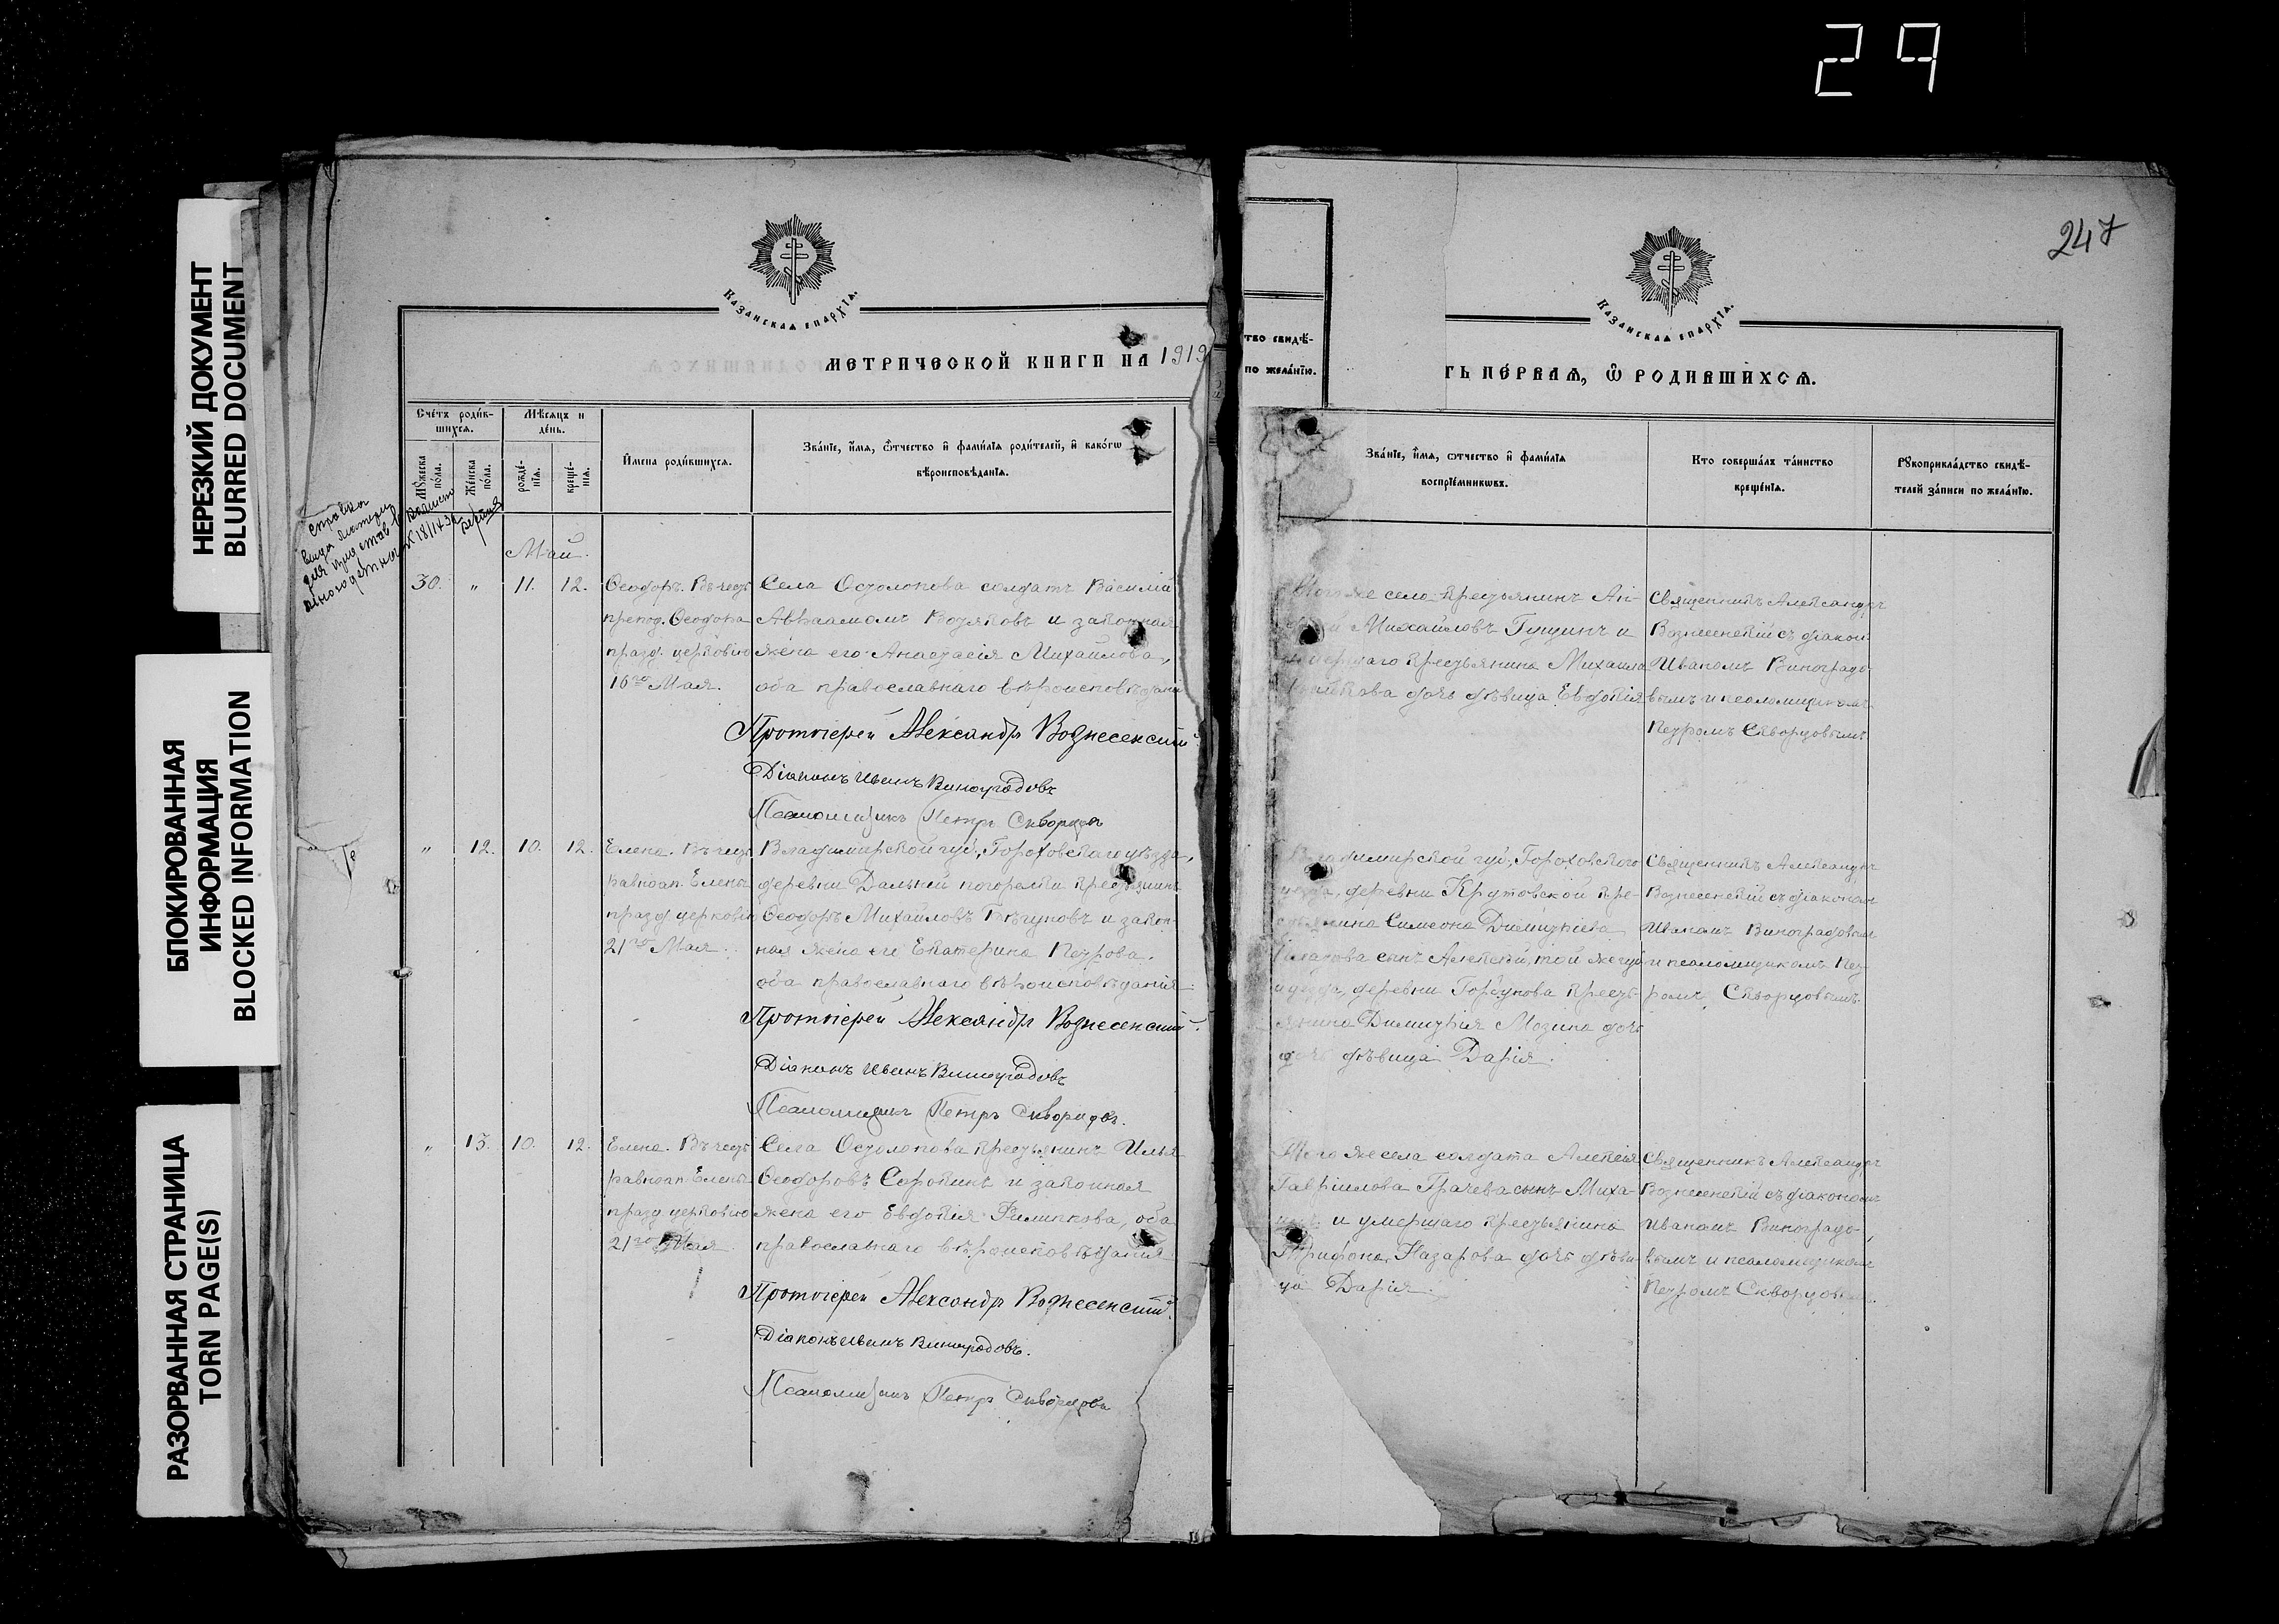 29
НЕРЕЗКИЙ ДОКУМЕНТ
BLURRED DOCUMENT
БЛОКИРОВАННАЯ
ИНФОРМАЦИЯ
BLOCKED INFORMATION
РАЗОРВАННАЯ СТРАНИЦА
TORN PAGE(S)
КАЗАНСКАЯ ЕПАРХІЯ.
МЕТРИЧЕСКОЙ КНИГИ НА 1919
Счетъ родив-
шихся.
Мѣсяцъ и
день.
Мужеска
пола.
Женска
пола.
рожде-
нія.
креще-
нія.
Имена родившихся.
Званіе, имя, отчество и фамилія родителей, и какогѡ
вѣроисповѣданія.
справка
выда
для
Май.
30. " 11. 12.
Ѳеодоръ. Въ честь
препод. Ѳеодора
празд. церковію
16го Мая.
Села Остолопова солдатъ Василій
Авраамовъ и законная
жена его Анастасія Михайлова,
оба православнаго вѣроисповѣданія
Протоіерей Александръ Вознесенскій
Діаконъ Иванъ Виноградовъ
Псаломщикъ Петръ Скворцовъ
" 12. 10. 12.
Елена. Въ честь
равноап. Елены
празд. церковію
21го Мая.
Владимирской губ., Гороховскаго уѣзда,
деревни Дальней погорелки крестьянинъ
Ѳеодоръ Михайловъ и закон-
ная жена его Екатерина Петрова.
оба православнаго вѣроисповѣданія.
Протоіерей Александръ Вознесенскій.
Діаконъ Иванъ Виноградовъ
Псаломщикъ Петръ Скворцовъ.
" 13. 10. 12.
Елена. Въ честь
равноап. Елены
празд. церковію
21го Мая
Села Остолопова крестьянинъ Илья
Ѳеодоровъ Сорокинъ и законная
жена его Евдокія Филиппова, оба
православнаго вѣроисповѣданія
Протоіерей Александръ Вознесенскій.
Діаконъ Иванъ Виноградовъ.
Псаломщикъ Петръ Скворцовъ
247
КАЗАНСКАЯ ЕПАРХІЯ.
тво свидѣ-
по желанію.
ТЬ ПЕРВАЯ, Ѡ РОДИВШИХСЯ.
Званіе, имя, отчество и фамилія
воспріемникѡвъ.
Кто совершалъ таинство
крещенія.
Рукоприкладство свидѣ-
телей записи по желанію.
же село крестьянинъ Ан-
Михайловъ Гущинъ и
крестьянина Михаила
дочь дѣвица Евдокія
Священникъ Александръ
Вознесенскій съ діакон.
Иваномъ Виноградо-
вымъ и псаломщикомъ
Петромъ Скворцовымъ
губ., Гороховского
деревни Крутовской кре-
Симеона Димитріева
сынъ Алексѣй, той же губ.
и уѣзда, деревни Горбунова кресть-
янина Димитрія Мозина дочь
дѣвица Дарія.
Священникъ Александръ
Вознесенскій съ діакономъ
Иваномъ Виноградовымъ
и псаломщикомъ Пет-
ромъ Скворцовымъ.
Того же села солдата Алексія
Гавріилова Грачева сынъ Миха-
и умершаго крестьянина
Трифона Назарова дочь дѣви-
ца Дарія.
Священникъ Александръ
Вознесенскій съ діакономъ
Иваномъ Виноградо-
вымъ и псаломщикомъ
Петромъ Скворцовымъ.